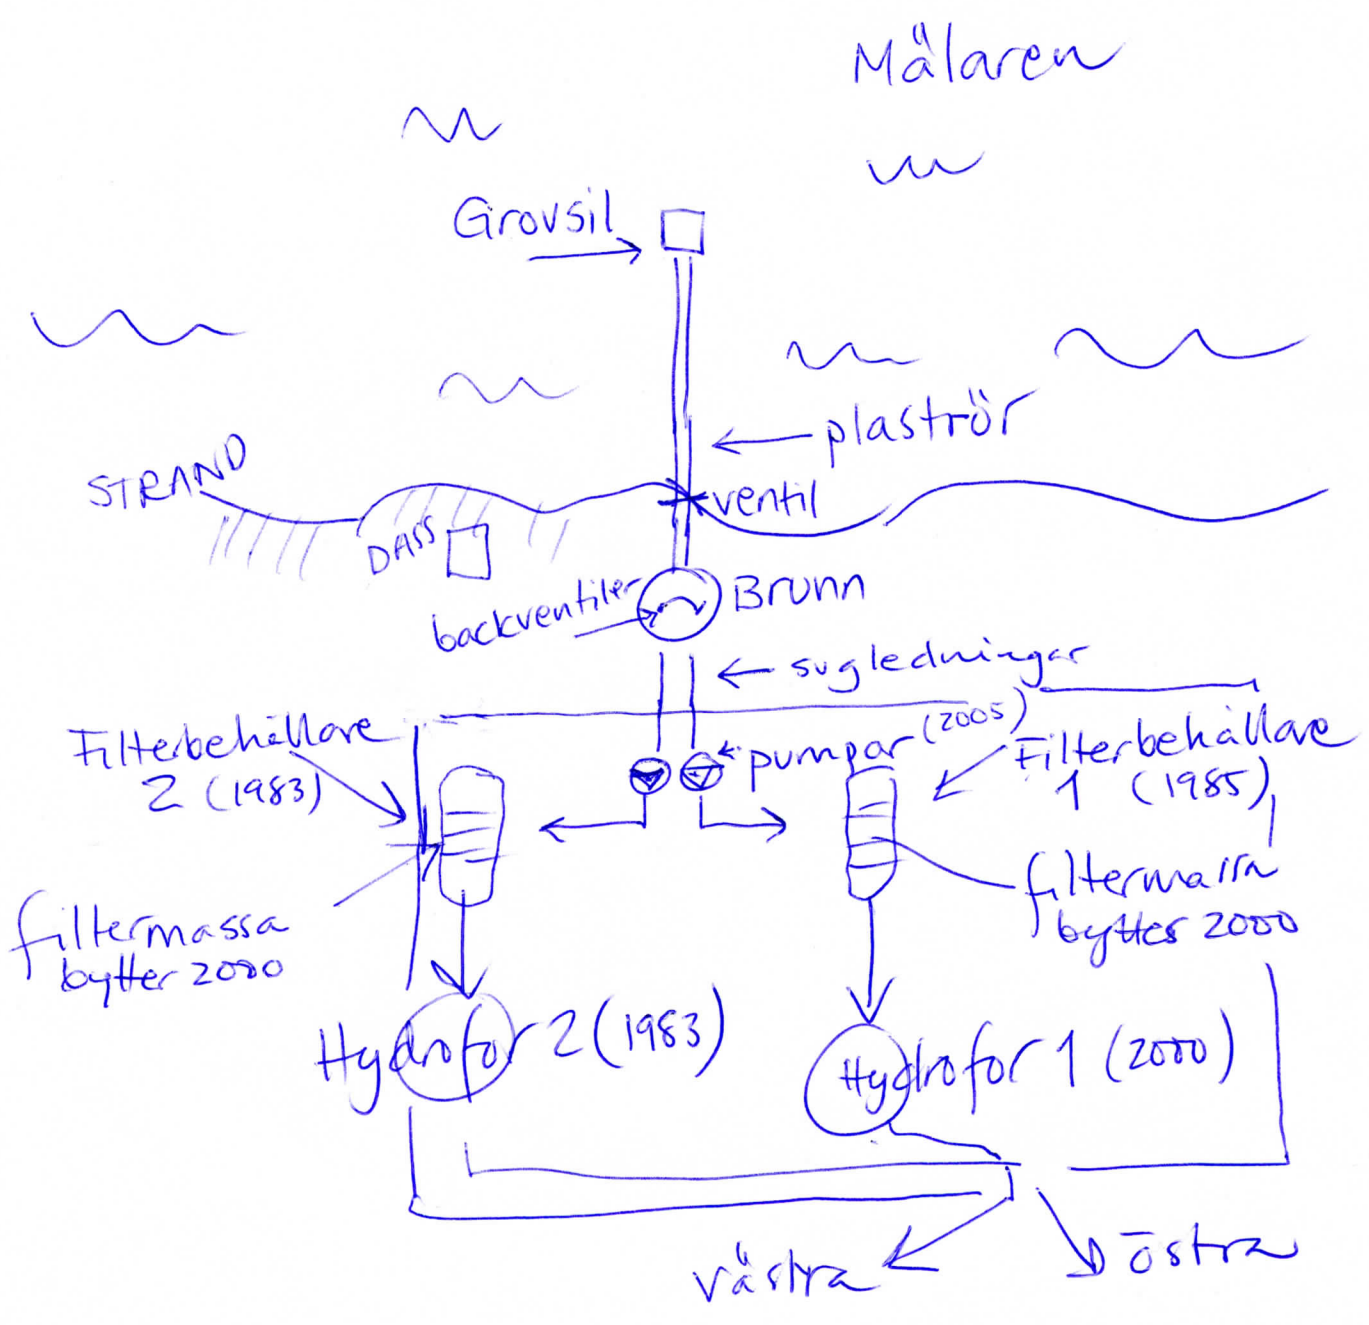 Mälaren
Grovsil
plaströr
STRAND
ventil
DASS
backventiler
Brunn
sugledningar
Filterbehållare
2 (1983)
pumpar (2005)
Filterbehållare
1 (1985)
filtermassa
bytter 2000
filtermassa
byttes 2000
Hydrofor 2 (1983)
Hydrofor 1 (2000)
västra
östra